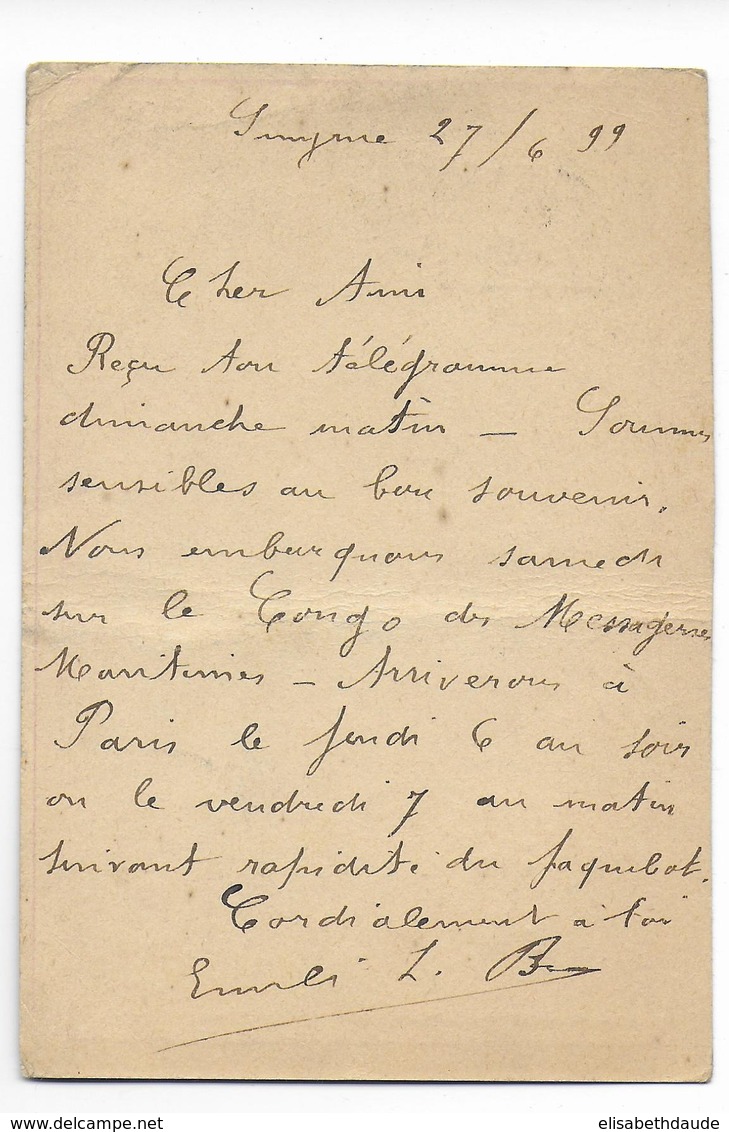 Smyrne 27/6 99
Cher Ami
Reçu ton télégramme
dimanche matin — Sommes
sensibles au bon souvenir.
Nous embarquons samedi
sur le Congo des Messageries
Maritimes — Arriverons à
Paris le jeudi 6 au soir
ou le vendredi 7 au matin
suivant rapidité du paquebot.
Cordialement à toi
L. B
elisabethdaude